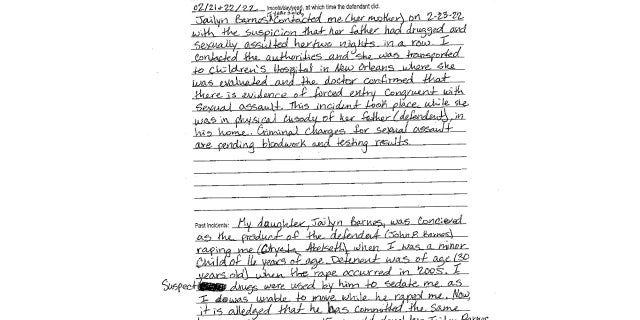 02/21+22/22 (month/day/year), at which time the defendant did:
Jailyn Barnes contacted me (her mother) on 2-23-22
with the suspicion that her father had drugged and
sexually assulted her two nights in a row I
contacted the authorities and she was transported
to Children's Hospital in New Orleans where she
was evaluated and the doctor confirmed that
there is evidence of forced entry congruent with
sexual assault. This incident took place while she
was in physical cusody of her father (defendent), in
his home. Criminal charges for sexual assault
are pending bloodwork and testing results.
Past Incidents: My daughter, Jailyn Barnes, was concieved
as the product of the defendent (John P. Barnes)
raping me (Crysta Abelseth) when I was a minor
child of 16 years of age. Defenent was of age (30
years old) when the rape occurred in 2005. I
Suspect drugs were used by him to sedate me as
I was unable to move while he raped me. Now,
it is alledged that he has committed the same
Jailyn Barnes